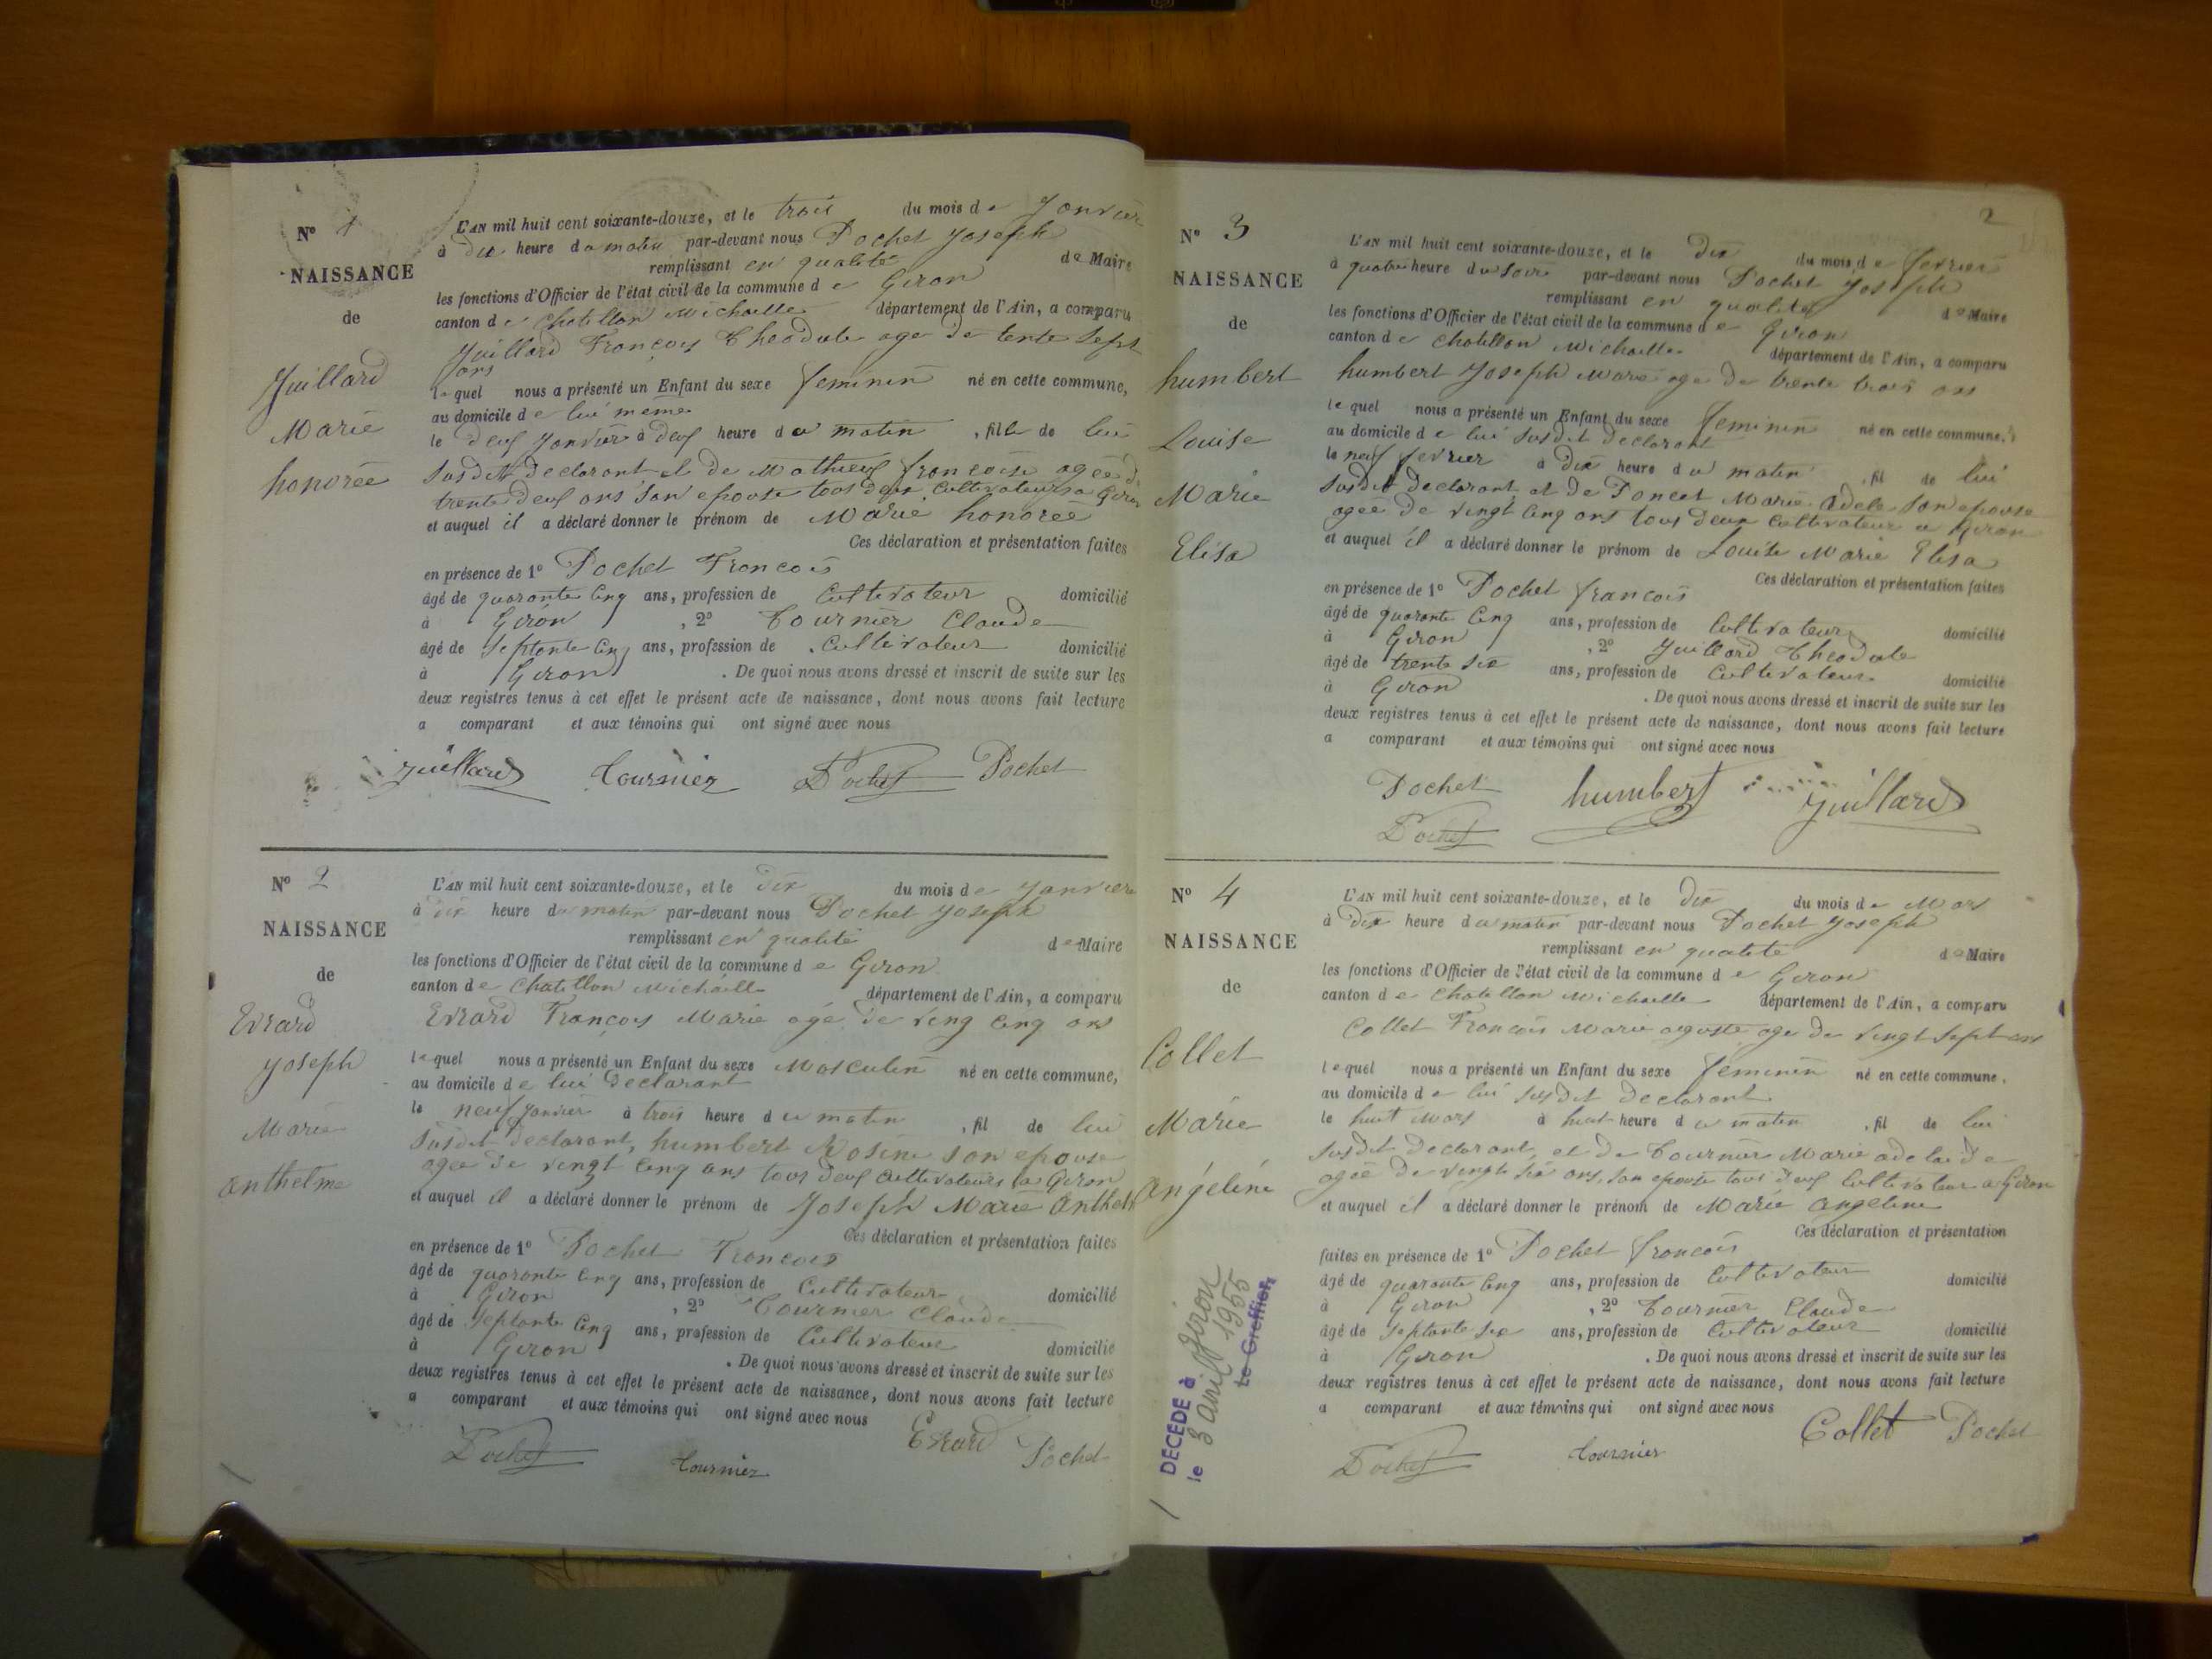 N° 1
NAISSANCE
de
Juillard
Marie
honorée
L'AN mil huit cent soixante-douze, et le trois du mois de Janvier
à dix heure du matin par-devant nous Pochet Joseph
remplissant en qualité de Maire
les fonctions d'Officier de l'état civil de la commune de Giron
canton de Chatillon Michaille département de l'Ain, a comparu
Juillard François Theodule age de tente sept
ans
lequel nous a présenté un Enfant du sexe feminin né en cette commune,
au domicile de lui meme
le deux Janvier à deux heure du matin , fille de lui
susdit declarant et de Mathieux francoise agée de
trente deux ans son epouse tous deux Cultivateurs a Giron
et auquel il a déclaré donner le prénom de Marie honorée
Ces déclaration et présentation faites
en présence de 1° Pochet Francois
âgé de quarante cinq ans, profession de Cultivateur domicilié
à Giron , 2° Tournier Claude
âgé de septante cinq ans, profession de Cultivateur domicilié
à Giron . De quoi nous avons dressé et inscrit de suite sur les
deux registres tenus à cet effet le présent acte de naissance, dont nous avons fait lecture
a comparant et aux témoins qui ont signé avec nous
Juillard Tournier Pochet Pochet
N° 2
NAISSANCE
de
Evrard
Joseph
Marie
Anthelme
L'AN mil huit cent soixante-douze, et le dix du mois de Janvier
à dix heure du matin par-devant nous Pochet Joseph
remplissant en qualité de Maire
les fonctions d'Officier de l'état civil de la commune de Giron
canton de Chatillon Michaille département de l'Ain, a comparu
Evrard François Marie agé de ving cinq ans
lequel nous a présenté un Enfant du sexe Masculin né en cette commune,
au domicile de lui declarant
le neuf Janvier à trois heure du matin , fil de lui
susdit declarant, humbert Rosine son epouse
agee de vingt cinq ans tous deux Cultivateurs a Giron
et auquel il a déclaré donner le prénom de Joseph Marie Anthelm
Ces déclaration et présentation faites
en présence de 1° Pochet Francois
âgé de quarante cinq ans, profession de Cultivateur domicilié
à Giron , 2° Tournier Claude
âgé de septante cinq ans, profession de Cultivateur domicilié
à Giron . De quoi nous avons dressé et inscrit de suite sur les
deux registres tenus à cet effet le présent acte de naissance, dont nous avons fait lecture
a comparant et aux témoins qui ont signé avec nous
Pochet Tournier Evrard Pochet
2
N° 3
NAISSANCE
de
humbert
Louise
Marie
Elisa
L'AN mil huit cent soixante-douze, et le dix du mois de fevrier
à quatre heure du soir par-devant nous Pochet Joseph
remplissant en qualité de Maire
les fonctions d'Officier de l'état civil de la commune de Giron
canton de Chatillon Michaille département de l'Ain, a comparu
humbert Joseph Marie age de trente trois ans
lequel nous a présenté un Enfant du sexe feminin né en cette commune,
au domicile de lui susdit declarant
le neuf fevrier à dix heure du matin , fil de lui
susdit declarant et de Poncet Marie Adele son epouse
agée de vingt cinq ans tous deux cultivateur a Giron
et auquel il a déclaré donner le prénom de Louise Marie Elisa
Ces déclaration et présentation faites
en présence de 1° Pochet francois
âgé de quarante cinq ans, profession de Cultivateur domicilié
à Giron , 2° Juillard Theodule
âgé de trente six ans, profession de Cultivateur domicilié
à Giron . De quoi nous avons dressé et inscrit de suite sur les
deux registres tenus à cet effet le présent acte de naissance, dont nous avons fait lecture
a comparant et aux témoins qui ont signé avec nous
Pochet humbert Juillard
Pochet
N° 4
NAISSANCE
de
Collet
Marie
Angéline
L'AN mil huit cent soixante-douze, et le dix du mois de Mars
à dix heure du matin par-devant nous Pochet Joseph
remplissant en qualité de Maire
les fonctions d'Officier de l'état civil de la commune de Giron
canton de Chatillon Michaille département de l'Ain, a comparu
Collet Francois Marie auguste age de vingt sept ans
lequel nous a présenté un Enfant du sexe feminin né en cette commune,
au domicile de lui susdit declarant
le huit Mars à huit heure du matin , fil de lui
susdit declarant, et de Tournier Marie adelaide
agée de vingt six ans, son epouse tous deux Cultivateur a Giron
et auquel il a déclaré donner le prénom de Marie Angeline
Ces déclaration et présentation
faites en présence de 1° Pochet francois
âgé de quarante cinq ans, profession de Cultivateur domicilié
à Giron , 2° Tournier Claude
âgé de septante six ans, profession de Cultivateur domicilié
à Giron . De quoi nous avons dressé et inscrit de suite sur les
deux registres tenus à cet effet le présent acte de naissance, dont nous avons fait lecture
a comparant et aux témoins qui ont signé avec nous
Pochet Tournier Collet Pochet
DECEDE à Giron
le 3 avril 1955
Le Greffier,